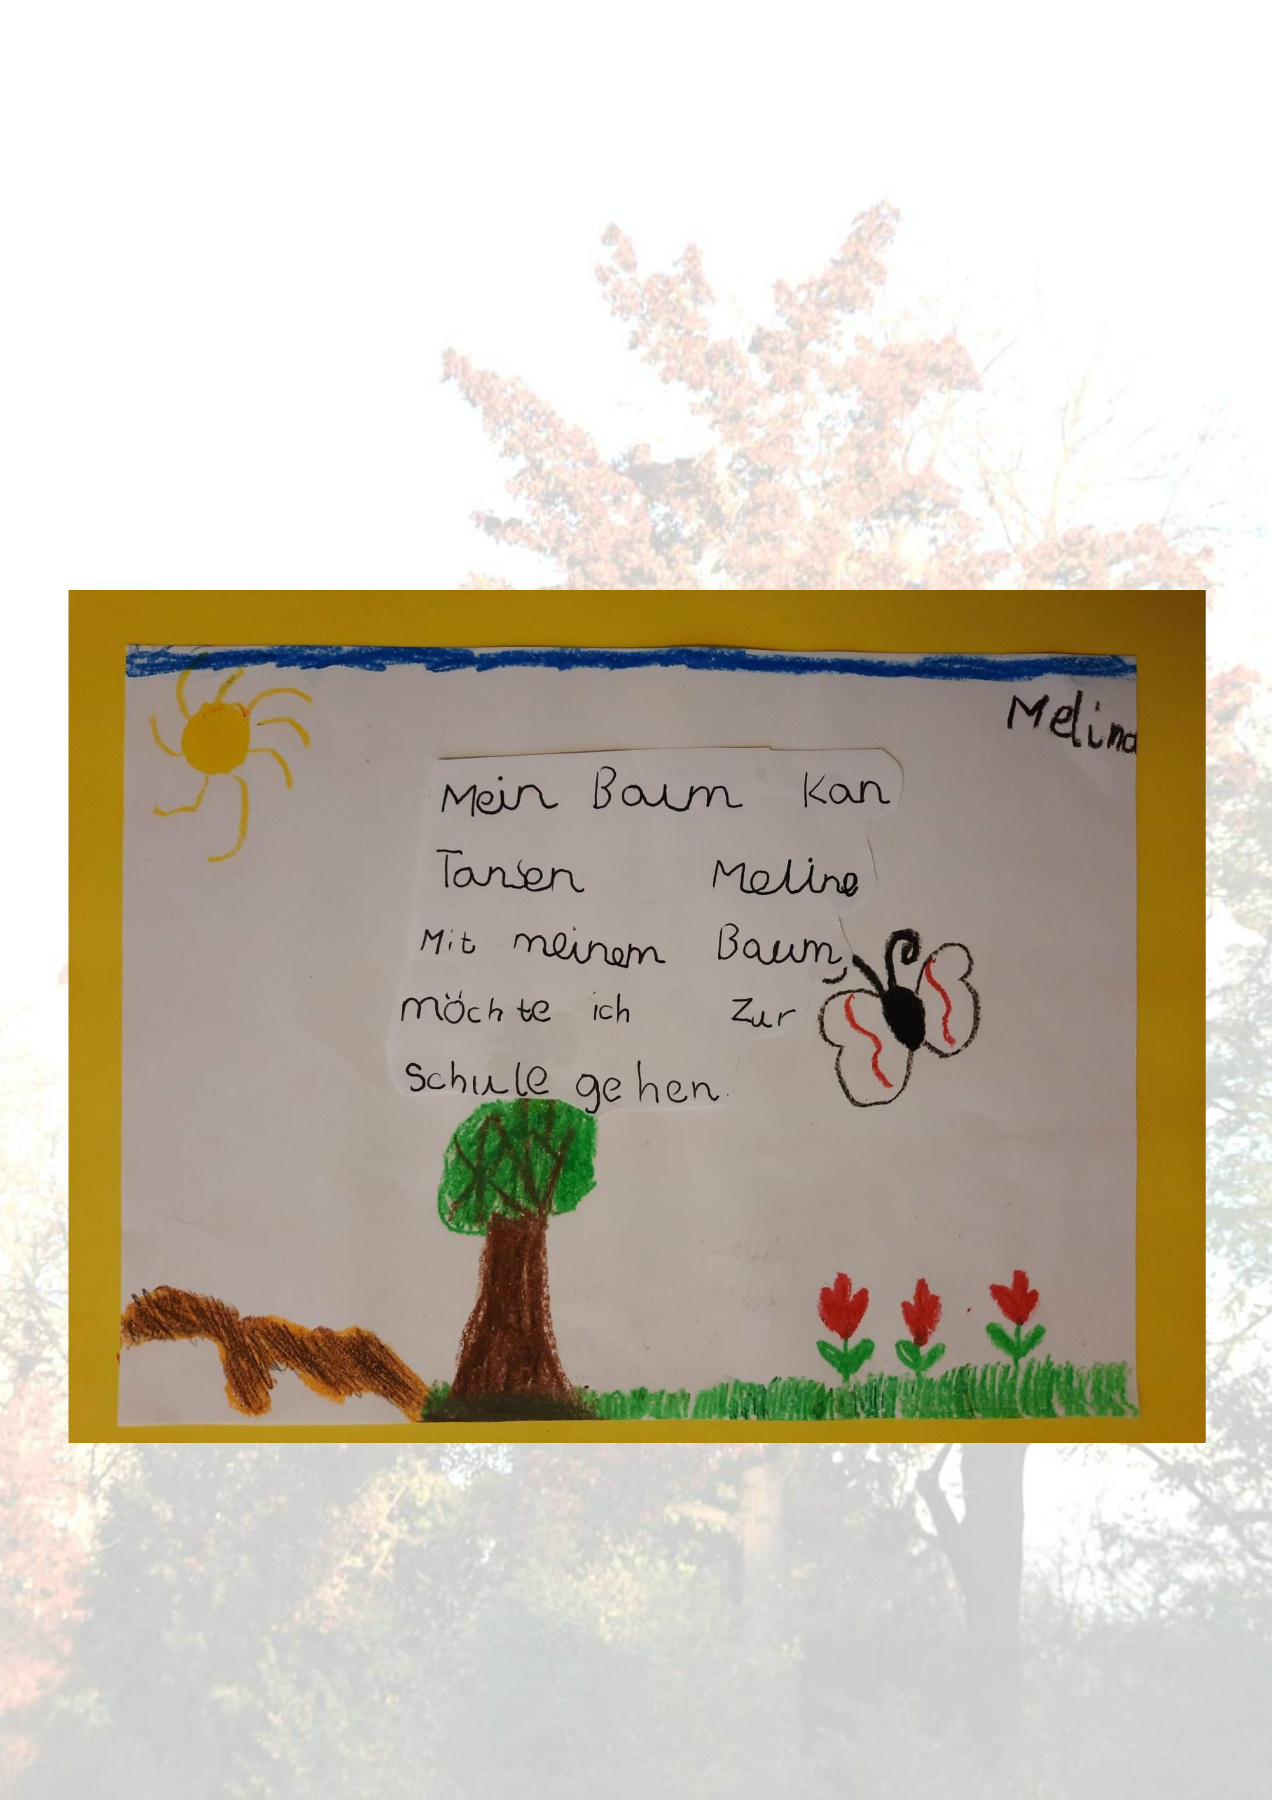 Melina
Mein Baum kan
Tansen Meline
Mit meinem Baum
möchte ich zur
Schule gehen.